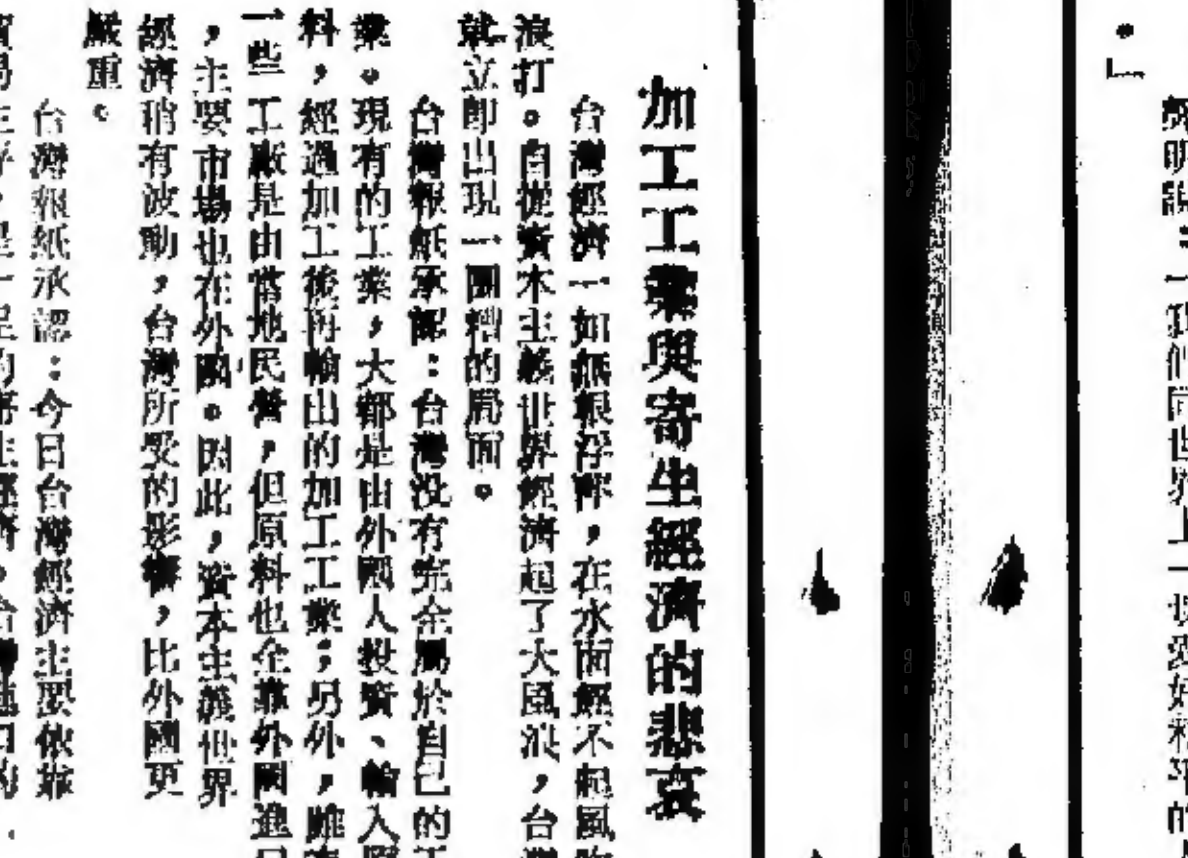 。」
聲明說：「我們同世界上一切愛好和平的
加工工業與寄生經濟的悲哀
台灣經濟一如無根浮萍，在水面經不起風吹
浪打。自從資本主義世界經濟起了大風浪，台灣
就立即出現一團糟的局面。
台灣報紙承認：台灣没有完全屬於自己的工
業。現有的工業，大都是由外國人投資、輸入原
料，經過加工後再輸出的加工工業；另外，雖有
一些工廠是由當地民營，但原料也全靠外國進口
，主要市場也在外國。因此，資本主義世界
經濟稍有波動，台灣所受的影響，比外國更
嚴重。
台灣報紙承認：今日台灣經濟主要依靠
貿易生存，是十足的寄生經濟，台灣進口的